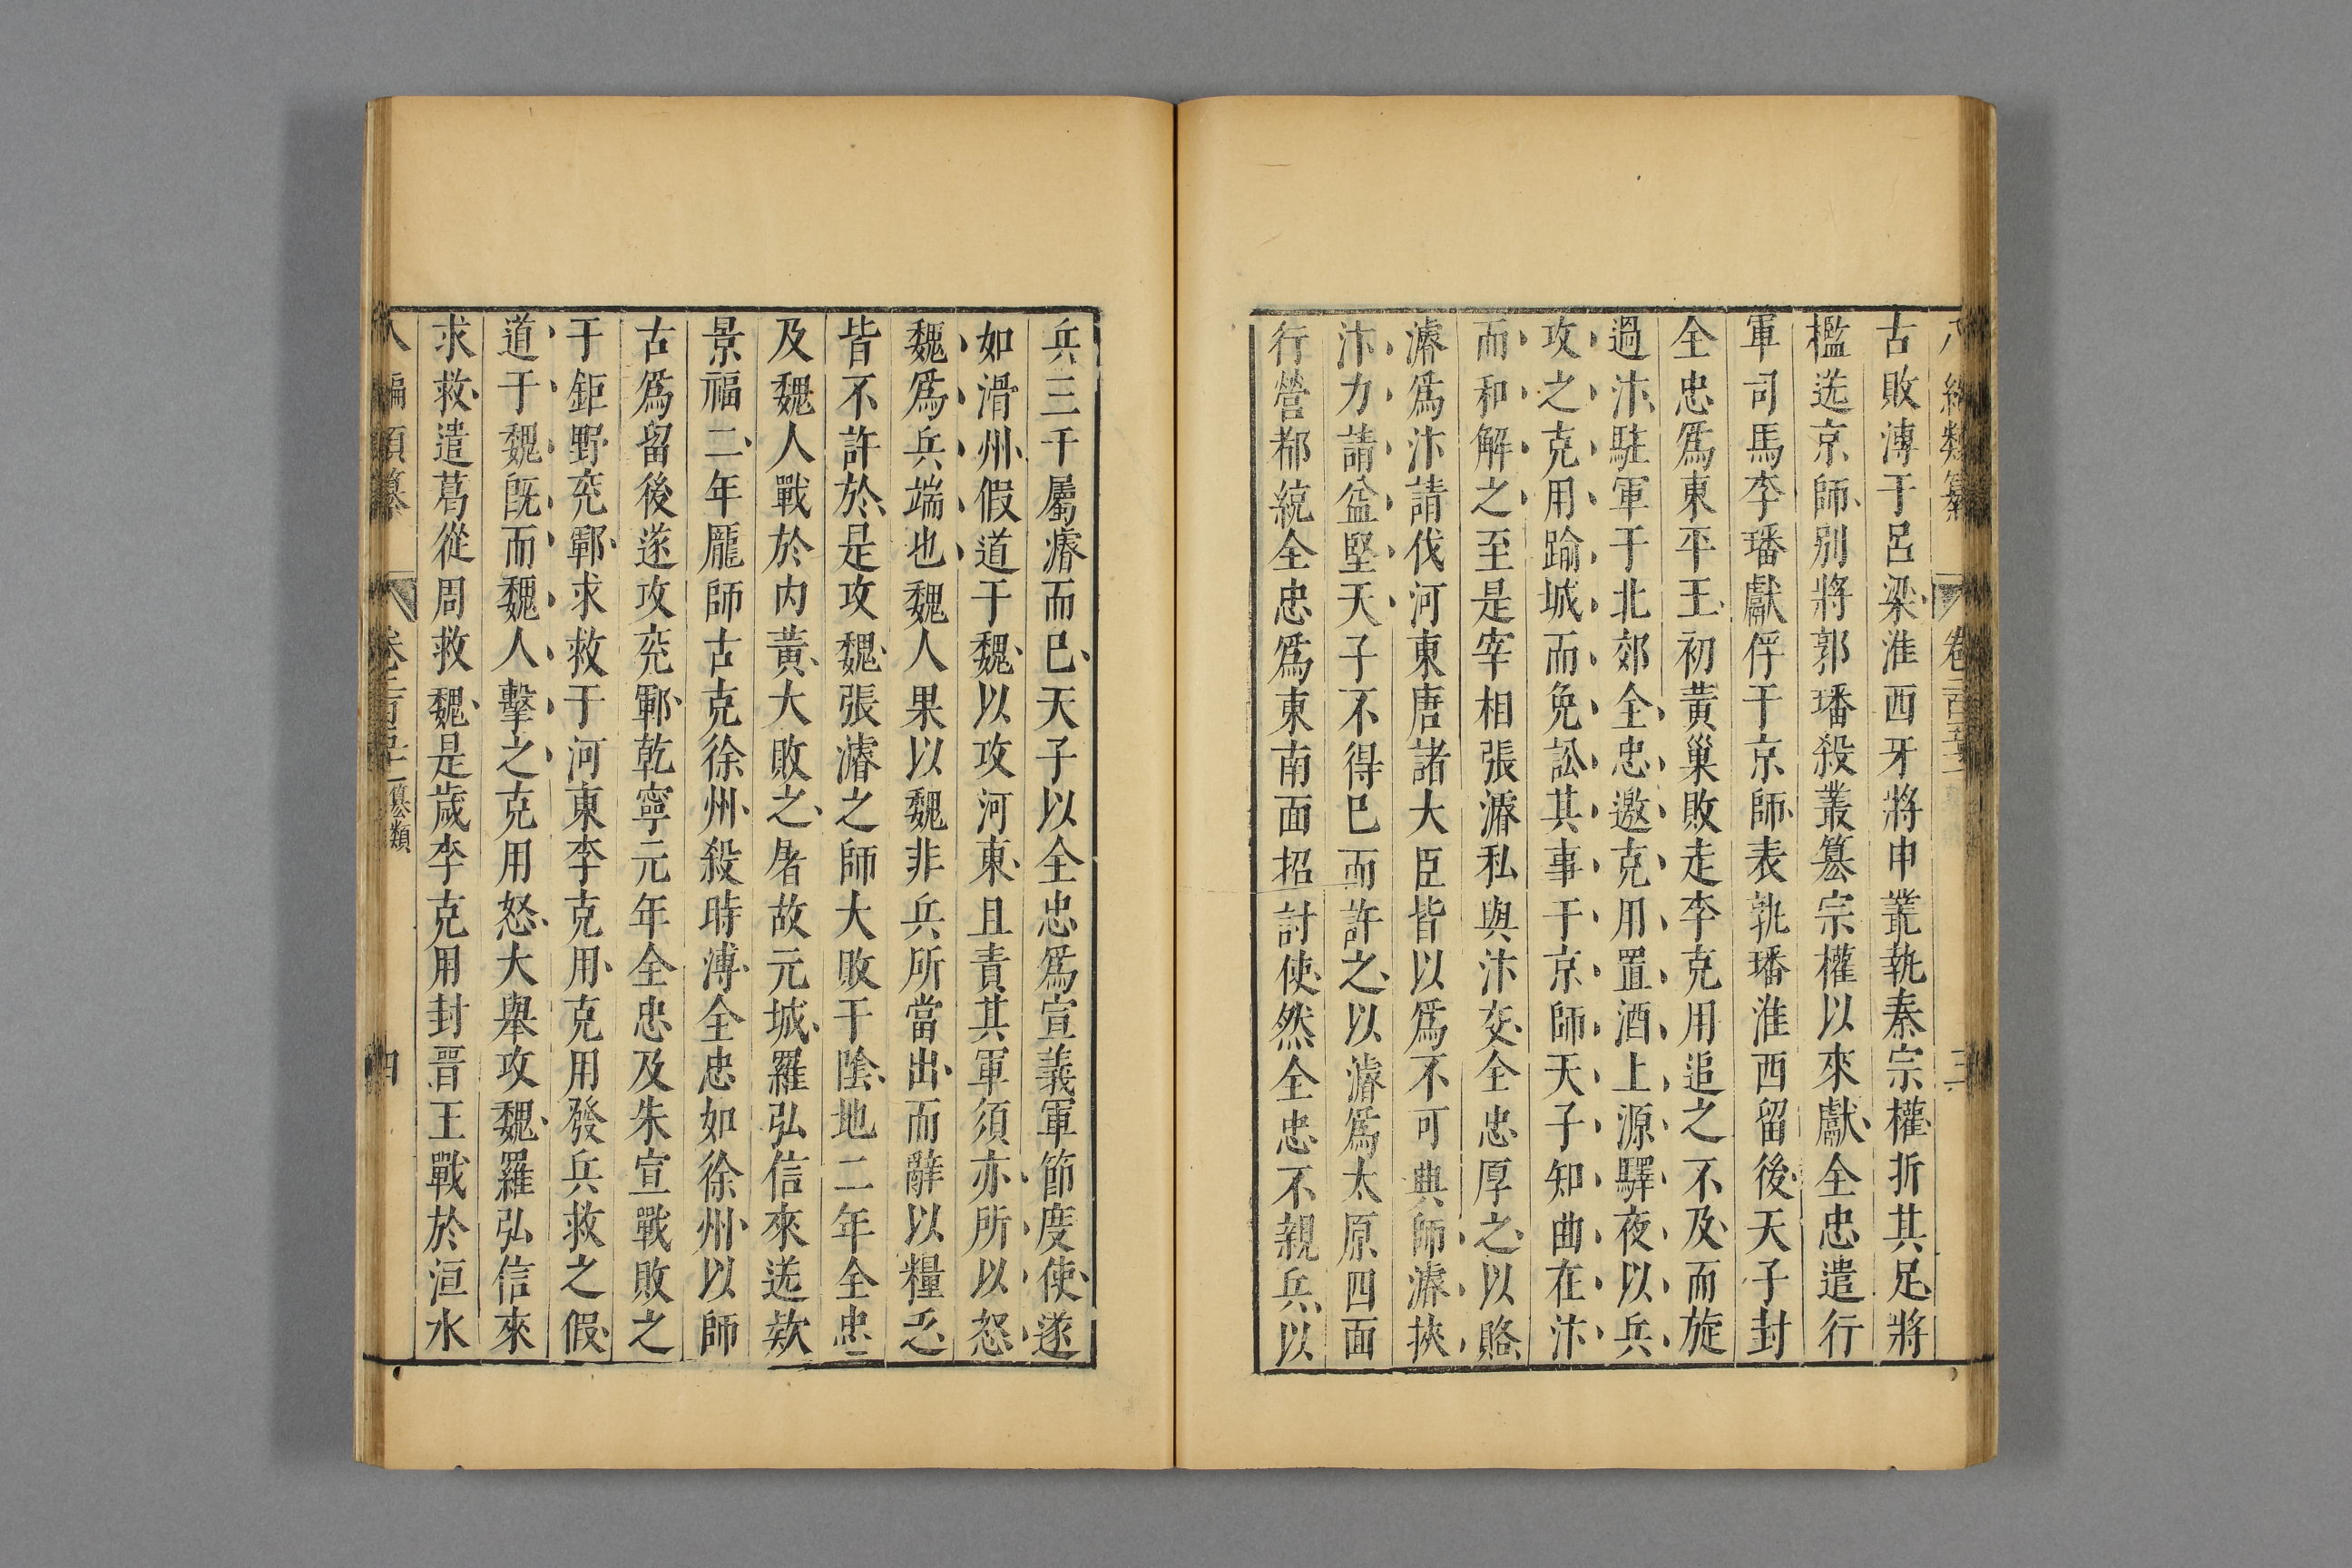 古敗溥于呂梁淮西牙將申叢執秦宗權折其足將
檻送京師別將郭璠殺叢篡宗權以來獻全忠遣行
軍司馬李璠獻俘于京師表執璠淮西留後天子封
全忠爲東平王初黃巢敗走李克用追之不及而旋
過汴駐軍于北郊全忠邀克用置酒上源驛夜以兵
攻之克用踰城而免訟其事于京師天子知曲在汴
而和解之至是宰相張濬私與汴交全忠厚之以賂
濬爲汴請伐河東唐諸大臣皆以爲不可與師濬挾
汴力請益堅天子不得已而許之以濬爲太原四面
行營都統全忠爲東南面招討使然全忠不親兵以
兵三千屬濬而已天子以全忠爲宣義軍節度使遂
如滑州假道于魏以攻河東且責其軍須亦所以怒
魏爲兵端也魏人果以魏非兵所當出而辭以糧乏
皆不許於是攻魏張濬之師大敗于陰地二年全忠
及魏人戰於内黃大敗之屠故元城羅弘信來送款
景福二年龐師古克徐州殺時溥全忠如徐州以師
古爲留後遂攻兖鄆乾寧元年全忠及朱宣戰敗之
于鉅野兖鄆求救于河東李克用克用發兵救之假
道于魏既而魏人擊之克用怒大舉攻魏羅弘信來
求救遣葛從周救魏是歲李克用封晋王戰於洹水
編類纂 卷 纂類 四